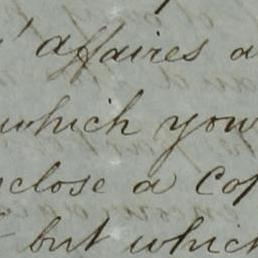 d'affaires a
which you
nclose a Cop
but which